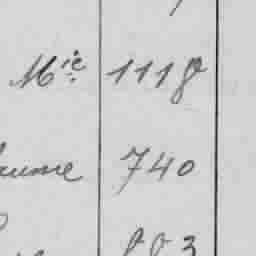 Mie 1118
aume 740
883